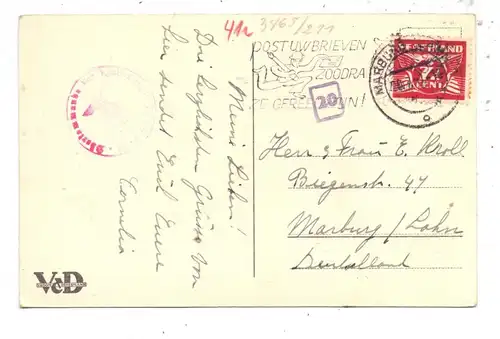 41r 3465/211
Meine Lieben!
Die herzlichsten Grüsse von
hier sendet Euch Eure
Cornelia
V&D
POST UW BRIEVEN
ZOODRA
ZE GEREED ZIJN!
20
MARBURG
NEDERLAND
7½
CENT
Oberkommando
Herr & Frau E. Kroll.
Biegenstr. 47
Marburg/Lahn
Deutschland